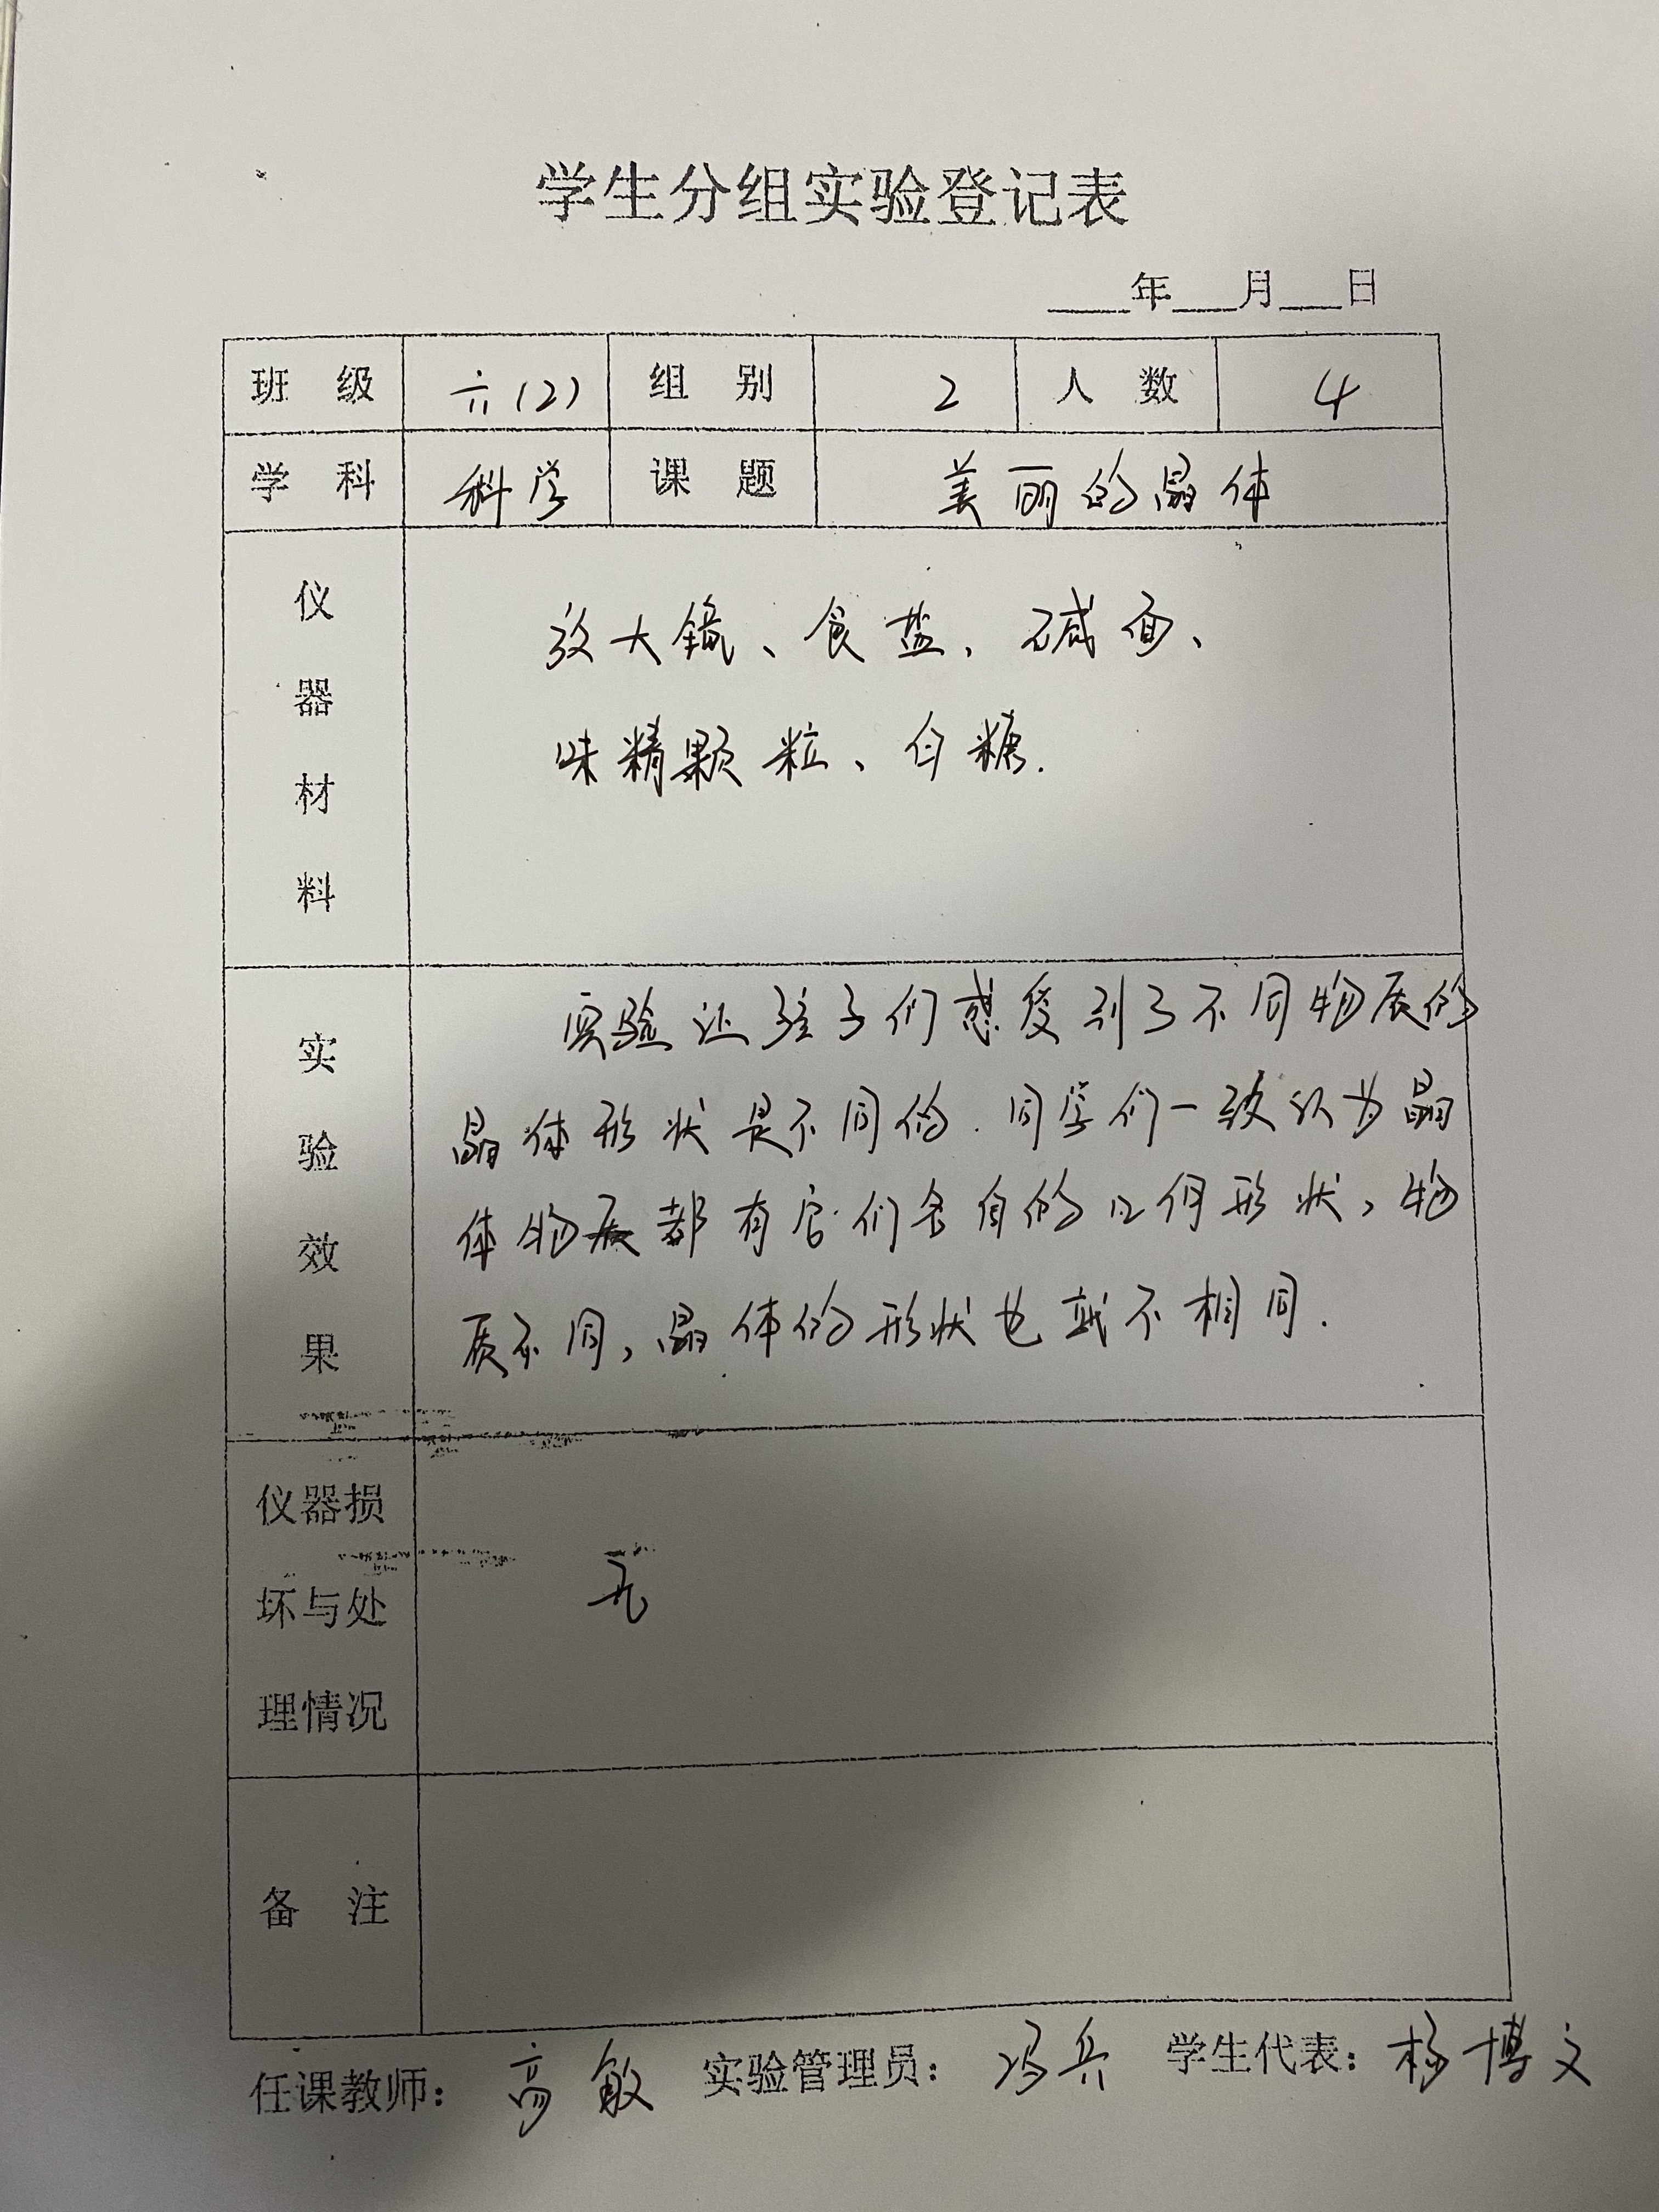 学生分组实验登记表
___年___月___日
班 级 六(2) 组 别 2 人 数 4
学 科 科学 课 题 美丽的晶体
仪器材料
放大镜、食盐、碱面、
味精颗粒、白糖.
实验效果
实验让孩子们感受到了不同物质的
晶体形状是不同的.同学们一致认为晶
体物质都有它们各自的几何形状,物
质不同,晶体的形状也就不相同.
仪器损
坏与处
理情况
无
备 注
任课教师: 高敏 实验管理员: 冯兵 学生代表: 杨博文